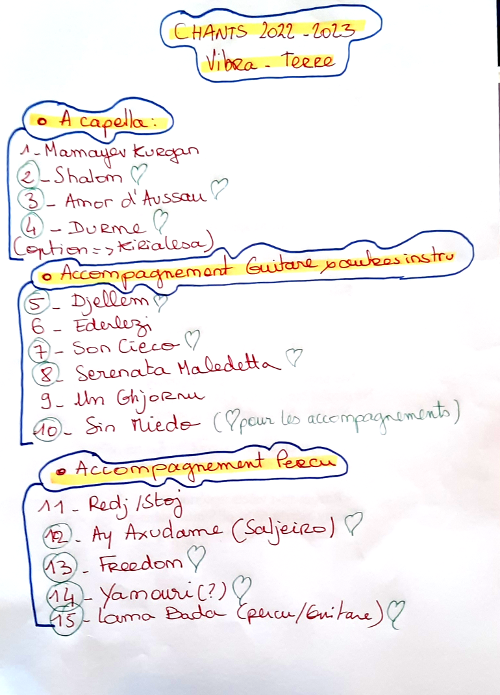 CHANTS 2022-2023
Vibra-Terre
• A capella:
1-Mamayev Kurgan
2-Shalom ♡
3-Amor d'Aussau ♡
4-Durme ♡
(option => Kizialesa)
• Accompagnement Guitare, autres instru
5-Djellem ♡
6-Ederlezi
7-Son Cieco ♡
8-Serenata Maledetta ♡
9-Un Ghjornu
10-Sin Miedo (♡pour les accompagnements)
• Accompagnement Percu
11-Redj/Stoj
12-Ay Axudame (Saljeiro) ♡
13-Freedom ♡
14-Yamouri(?) ♡
15-Lama Bada (percu/Guitare) ♡